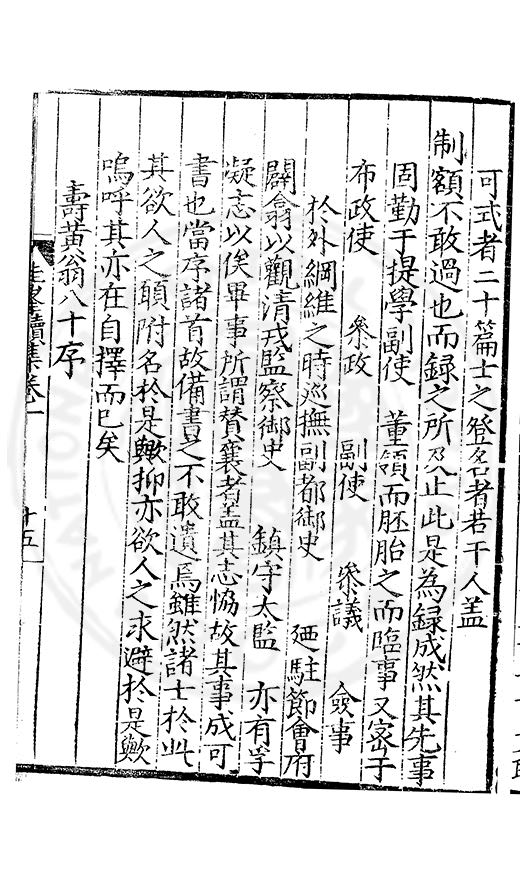 可式者二十篇士之登名者若干人盖
制額不敢過也而録之所及止此是為録成然其先事
固勤于提學副使 董領而胚胎之而臨事又密于
布政使 叅政 副使 叅議 僉事
於外綱維之時巡撫副都御史 廼駐節會府
闢翕以觀清戎監察御史 鎮守太監 亦有孚
凝志以俟畢事所謂賛襄者盖其志恊故其事成可
書也當序諸首故備書之不敢遺焉雖然諸士於此
其欲人之頣附名於是歟抑亦欲人之求避於是歟
嗚呼其亦在自擇而已矣
壽黃翁八十序
續集卷一
十五